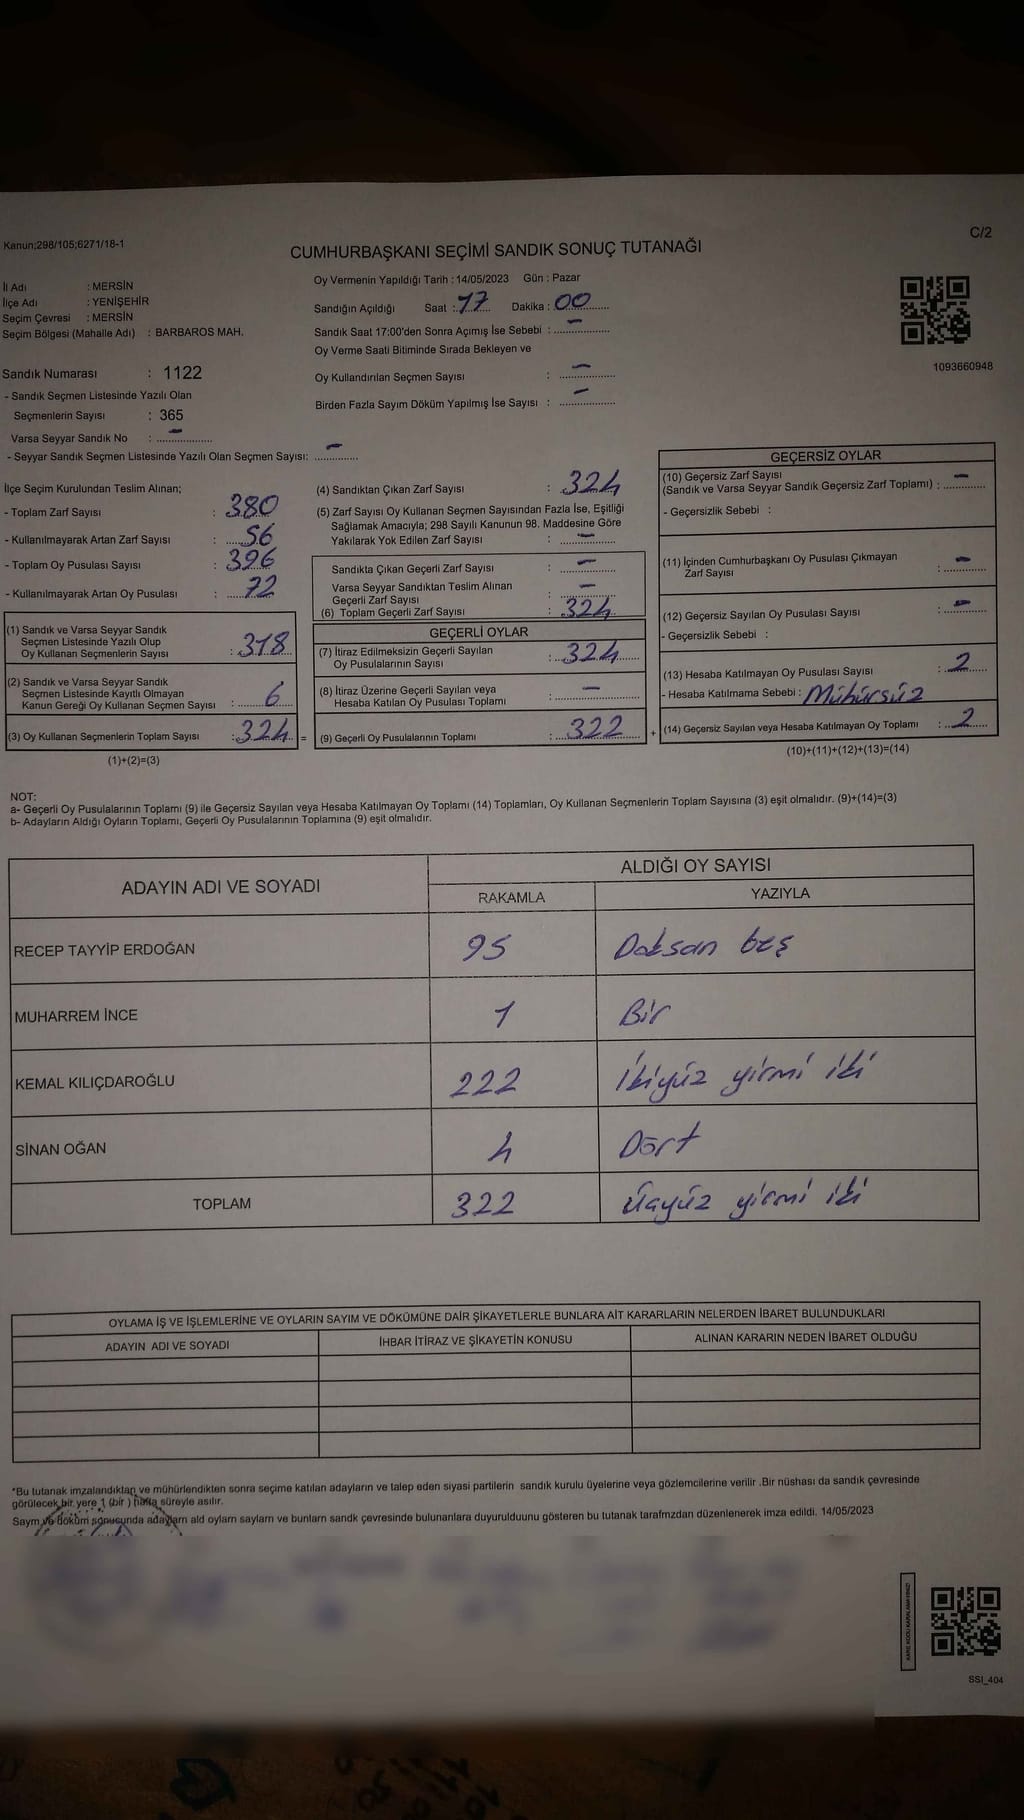 Kanun;298/105;6271/18-1
C/2
CUMHURBAŞKANI SEÇİMİ SANDIK SONUÇ TUTANAĞI
İl Adı : MERSİN
İlçe Adı : YENİŞEHİR
Seçim Çevresi : MERSİN
Seçim Bölgesi (Mahalle Adı) : BARBAROS MAH.
Sandık Numarası : 1122
- Sandık Seçmen Listesinde Yazılı Olan
Seçmenlerin Sayısı : 365
Varsa Seyyar Sandık No : –
- Seyyar Sandık Seçmen Listesinde Yazılı Olan Seçmen Sayısı: –
Oy Vermenin Yapıldığı Tarih : 14/05/2023 Gün : Pazar
Sandığın Açıldığı Saat : 17 Dakika : 00
Sandık Saat 17:00'den Sonra Açımış İse Sebebi : –
Oy Verme Saati Bitiminde Sırada Bekleyen ve
Oy Kullandırılan Seçmen Sayısı : –
Birden Fazla Sayım Döküm Yapılmış İse Sayısı : –
1093660948
İlçe Seçim Kurulundan Teslim Alınan;
- Toplam Zarf Sayısı : 380
- Kullanılmayarak Artan Zarf Sayısı : 56
- Toplam Oy Pusulası Sayısı : 396
- Kullanılmayarak Artan Oy Pusulası : 72
(1) Sandık ve Varsa Seyyar Sandık
Seçmen Listesinde Yazılı Olup
Oy Kullanan Seçmenlerin Sayısı : 318
(2) Sandık ve Varsa Seyyar Sandık
Seçmen Listesinde Kayıtlı Olmayan
Kanun Gereği Oy Kullanan Seçmen Sayısı : 6
(3) Oy Kullanan Seçmenlerin Toplam Sayısı : 324 =
(1)+(2)=(3)
(4) Sandıktan Çıkan Zarf Sayısı : 324
(5) Zarf Sayısı Oy Kullanan Seçmen Sayısından Fazla İse, Eşitliği
Sağlamak Amacıyla; 298 Sayılı Kanunun 98. Maddesine Göre
Yakılarak Yok Edilen Zarf Sayısı : –
Sandıkta Çıkan Geçerli Zarf Sayısı : –
Varsa Seyyar Sandıktan Teslim Alınan
Geçerli Zarf Sayısı : –
(6) Toplam Geçerli Zarf Sayısı : 324
GEÇERLİ OYLAR
(7) İtiraz Edilmeksizin Geçerli Sayılan
Oy Pusulalarının Sayısı : 324
(8) İtiraz Üzerine Geçerli Sayılan veya
Hesaba Katılan Oy Pusulası Toplamı : –
(9) Geçerli Oy Pusulalarının Toplamı : 322 +
GEÇERSİZ OYLAR
(10) Geçersiz Zarf Sayısı
(Sandık ve Varsa Seyyar Sandık Geçersiz Zarf Toplamı) : –
- Geçersizlik Sebebi :
(11) İçinden Cumhurbaşkanı Oy Pusulası Çıkmayan
Zarf Sayısı : –
(12) Geçersiz Sayılan Oy Pusulası Sayısı : –
- Geçersizlik Sebebi :
(13) Hesaba Katılmayan Oy Pusulası Sayısı : 2
- Hesaba Katılmama Sebebi : Mühürsüz
(14) Geçersiz Sayılan veya Hesaba Katılmayan Oy Toplamı : 2
(10)+(11)+(12)+(13)=(14)
NOT:
a- Geçerli Oy Pusulalarının Toplamı (9) ile Geçersiz Sayılan veya Hesaba Katılmayan Oy Toplamı (14) Toplamları, Oy Kullanan Seçmenlerin Toplam Sayısına (3) eşit olmalıdır. (9)+(14)=(3)
b- Adayların Aldığı Oyların Toplamı, Geçerli Oy Pusulalarının Toplamına (9) eşit olmalıdır.
ADAYIN ADI VE SOYADI
ALDIĞI OY SAYISI
RAKAMLA YAZIYLA
RECEP TAYYİP ERDOĞAN 95 Doksan beş
MUHARREM İNCE 1 Bir
KEMAL KILIÇDAROĞLU 222 İkiyüz yirmi iki
SİNAN OĞAN 4 Dört
TOPLAM 322 Üçyüz yirmi iki
OYLAMA İŞ VE İŞLEMLERİNE VE OYLARIN SAYIM VE DÖKÜMÜNE DAİR ŞİKAYETLERLE BUNLARA AİT KARARLARIN NELERDEN İBARET BULUNDUKLARI
ADAYIN ADI VE SOYADI İHBAR İTİRAZ VE ŞİKAYETİN KONUSU ALINAN KARARIN NEDEN İBARET OLDUĞU
*Bu tutanak imzalandıktan ve mühürlendikten sonra seçime katılan adayların ve talep eden siyasi partilerin sandık kurulu üyelerine veya gözlemcilerine verilir .Bir nüshası da sandık çevresinde
görülecek bir yere 1 (bir ) hafta süreyle asılır.
Saym ve döküm sonucunda adaylarn ald oylarn saylarn ve bunlarn sandk çevresinde bulunanlara duyurulduunu gösteren bu tutanak tarafmzdan düzenlenerek imza edildi. 14/05/2023
KARE KODU KARALAMAYINIZ!
SSI_404